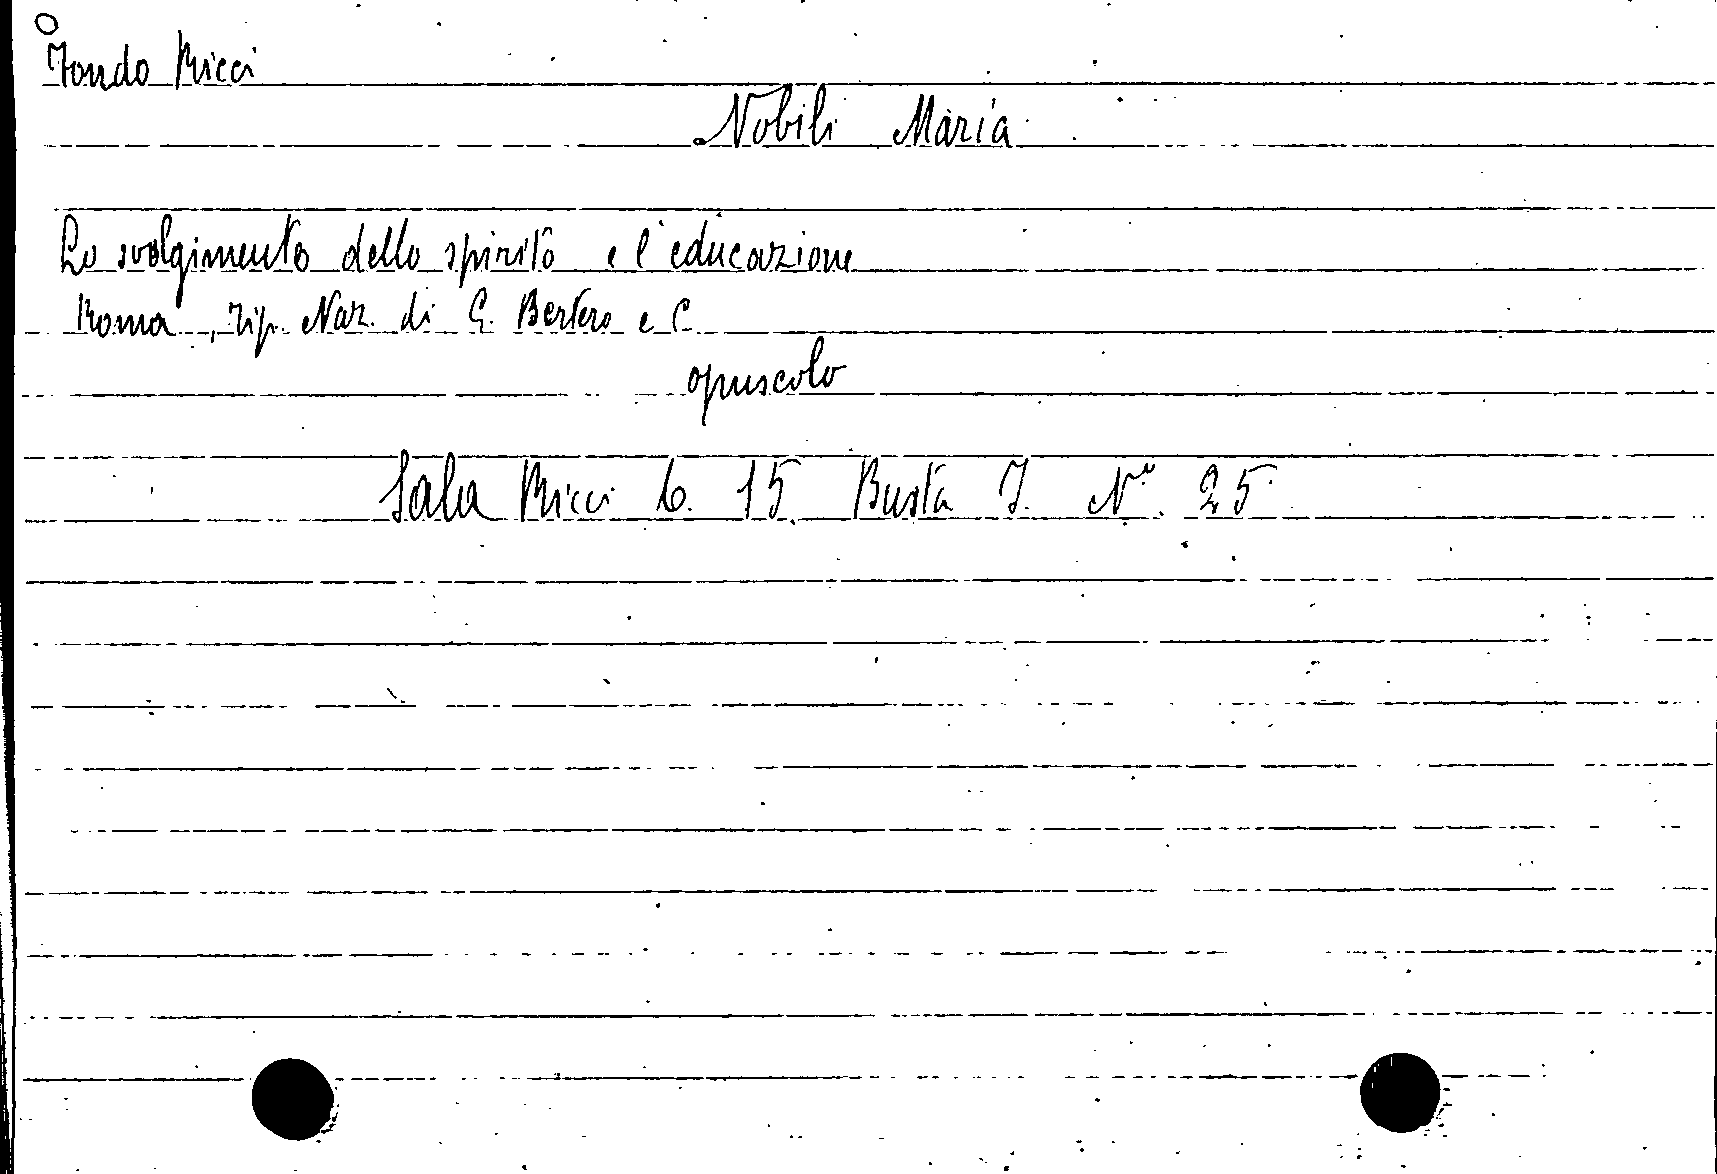 Fondo Ricci
Nobili Maria
Lo svolgimento dello spirito e l'educazione
Roma, Tip. Naz. di G. Bertero e C.
opuscolo
Sala Ricci 6. 15. Busta I. N° 25